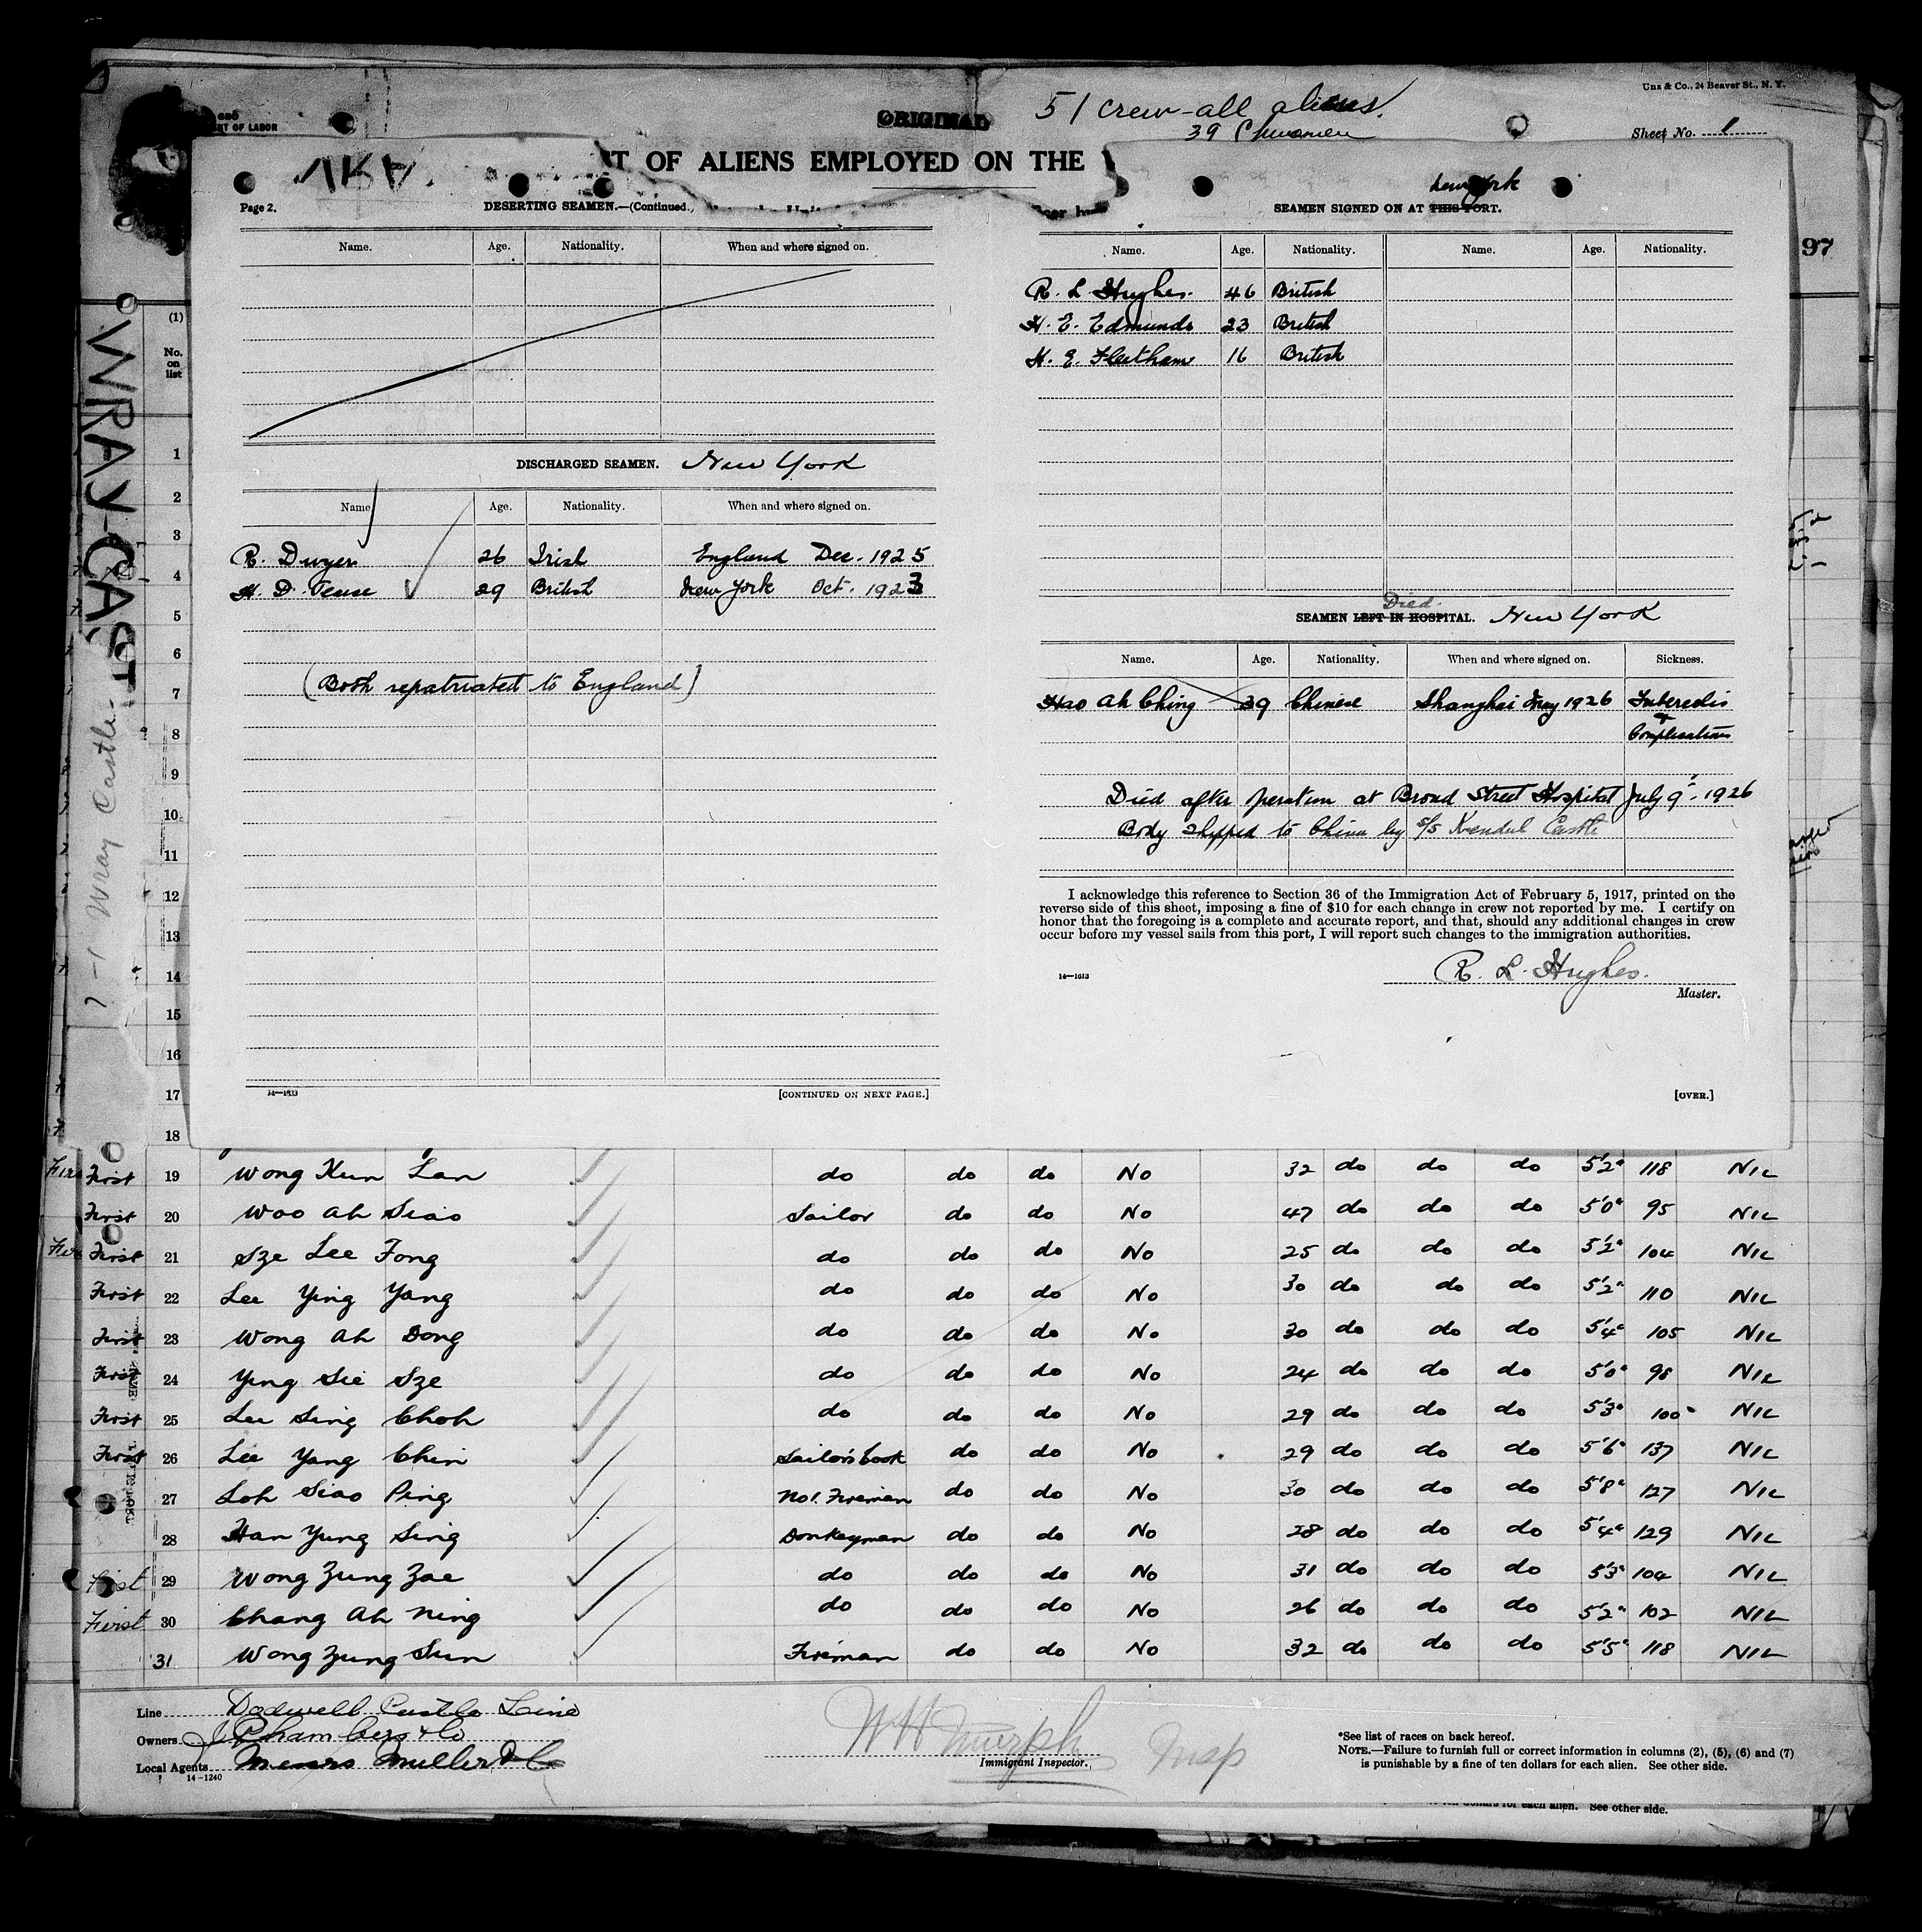 Unz & Co., 24 Beaver St., N. Y.
ORIGINAL
51 crew-all aliens.
39 Chinamen
Sheet No. 1
T OF LABOR
T OF ALIENS EMPLOYED ON THE
97
WRAY-CAST
Wray Castle.
(1)
No. on list
1
2
3
4
5
6
7
8
9
10
11
12
13
14
15
16
17
18
Page 2.
DESERTING SEAMEN.—(Continued.)
Name. Age. Nationality. When and where signed on.
DISCHARGED SEAMEN. New York
Name Age. Nationality. When and where signed on.
R. Dwyer 26 Irish England Dec. 1925
H. D. Tense 29 British New York Oct. 1923
(Both repatriated to England)
14—1613
[CONTINUED ON NEXT PAGE.]
New York
SEAMEN SIGNED ON AT THIS PORT.
Name. Age. Nationality. Name. Age. Nationality.
R. L. Hughes. 46 British
H. E. Edmunds 23 British
H. E. Fleetham 16 British
Died.
SEAMEN LEFT IN HOSPITAL. New York
Name. Age. Nationality. When and where signed on. Sickness.
Hao Ah Ching 39 Chinese Shanghai May 1926
& Complications
Died after operation at Broad Street Hospital July 9. 1926
Body shipped to China by s/s Kendal Castle
I acknowledge this reference to Section 36 of the Immigration Act of February 5, 1917, printed on the
reverse side of this sheet, imposing a fine of $10 for each change in crew not reported by me. I certify on
honor that the foregoing is a complete and accurate report, and that, should any additional changes in crew
occur before my vessel sails from this port, I will report such changes to the immigration authorities.
14—1613
R. L. Hughes.
Master.
[OVER.]
First 19 Wong Kun Lan do do do No 32 do do do 5'2" 118 NIL
First 20 Woo Ah Siao Sailor do do No 47 do do do 5'0" 95 NIL
First 21 Sze Lee Fong do do do No 25 do do do 5'2" 104 NIL
First 22 Lee Ying Yang do do do No 30 do do do 5'2" 110 NIL
First 23 Wong Ah Dong do do do No 30 do do do 5'4" 105 NIL
First 24 Ying Sie Sze do do do No 24 do do do 5'0" 98 NIL
First 25 Lee Sing Choh do do do No 29 do do do 5'3" 100 NIL
First 26 Lee Yang Chin Sailor's Cook do do No 29 do do do 5'6" 137 NIL
27 Loh Siao Ping No1. Fireman do do No 30 do do do 5'8" 127 NIL
28 Han Yung Sing Donkeyman do do No 28 do do do 5'4" 129 NIL
First 29 Wong Zung Zae do do do No 31 do do do 5'3" 104 NIL
First 30 Chang Ah Ning do do do No 26 do do do 5'2" 102 NIL
31 Wong Zung Sun Fireman do do No 32 do do do 5'5" 118 NIL
Line Dodwell Castle Line
Owners J. Chambers & Co
Local Agents Messrs Muller & Co
14-1240
W H Murph Insp
Immigrant Inspector.
*See list of races on back hereof.
NOTE.—Failure to furnish full or correct information in columns (2), (5), (6) and (7)
is punishable by a fine of ten dollars for each alien. See other side.
ten dollars for each alien. See other side.